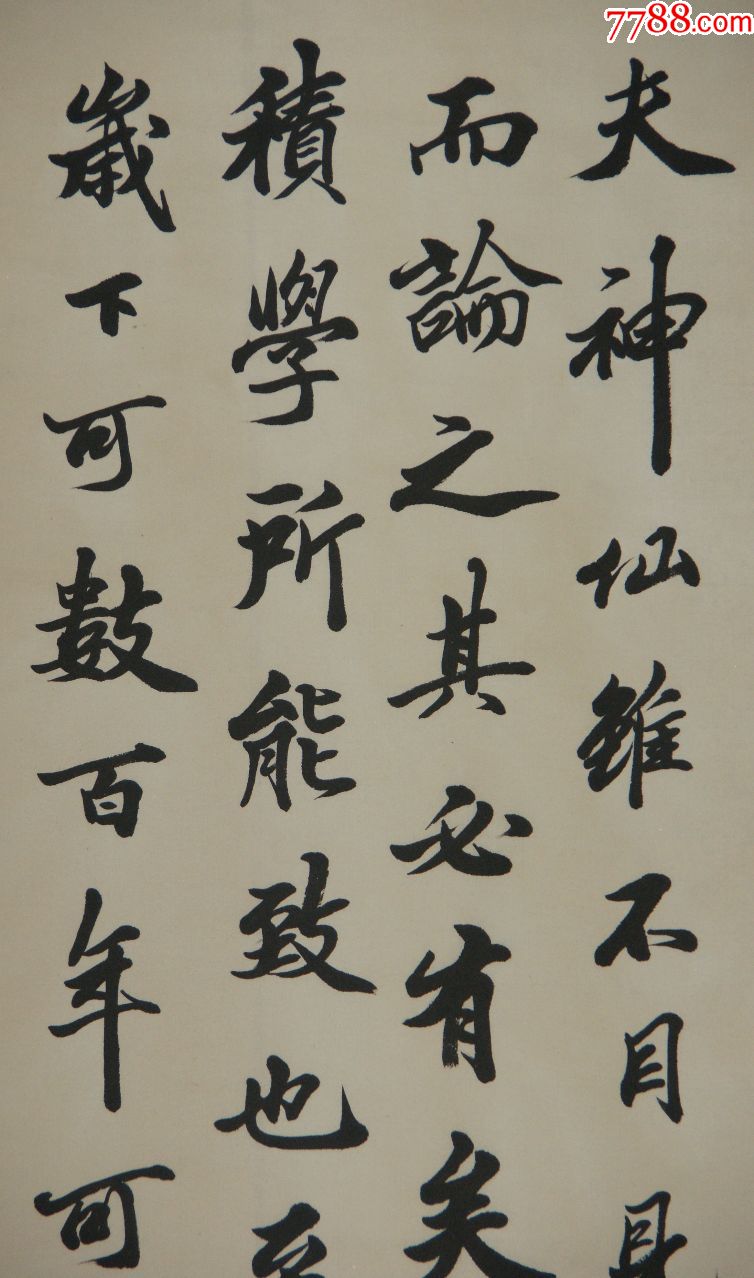 7788.com
夫神仙雖不目
而論之其必有矣
積學所能致也至
歲下可數百年可